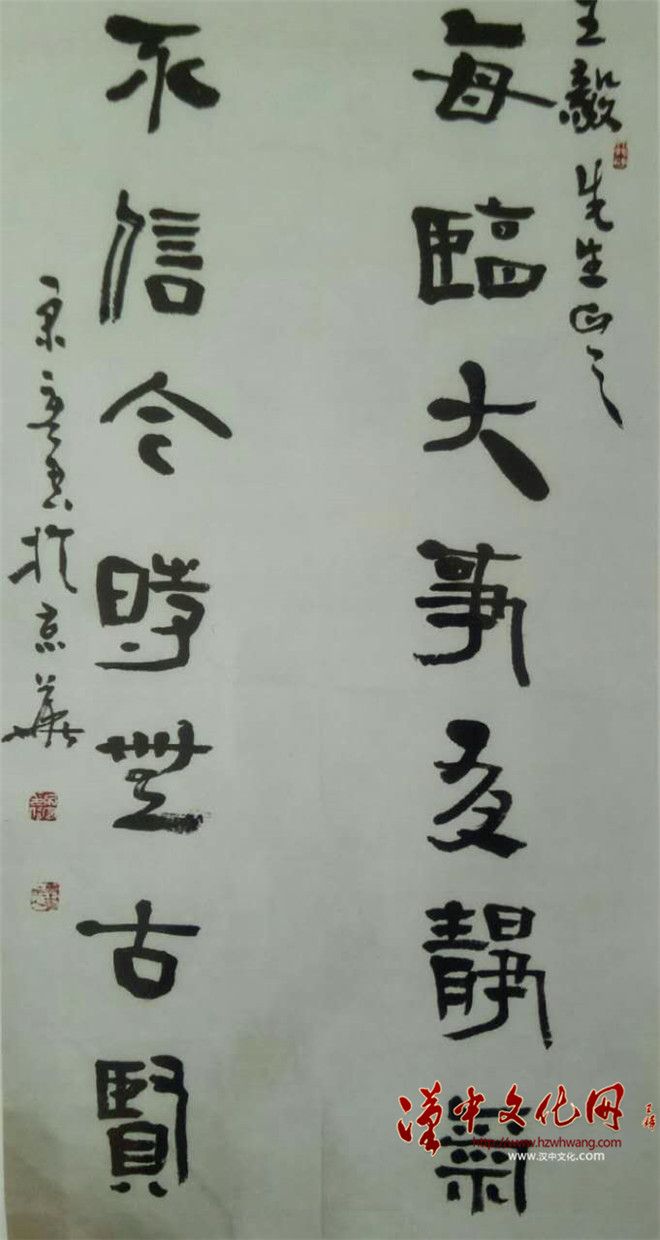 王毅先生正之
每臨大事有靜氣
不信今時無古賢
於京華
漢中文化网
http://www.hzwhwang.com
www.汉中文化.com